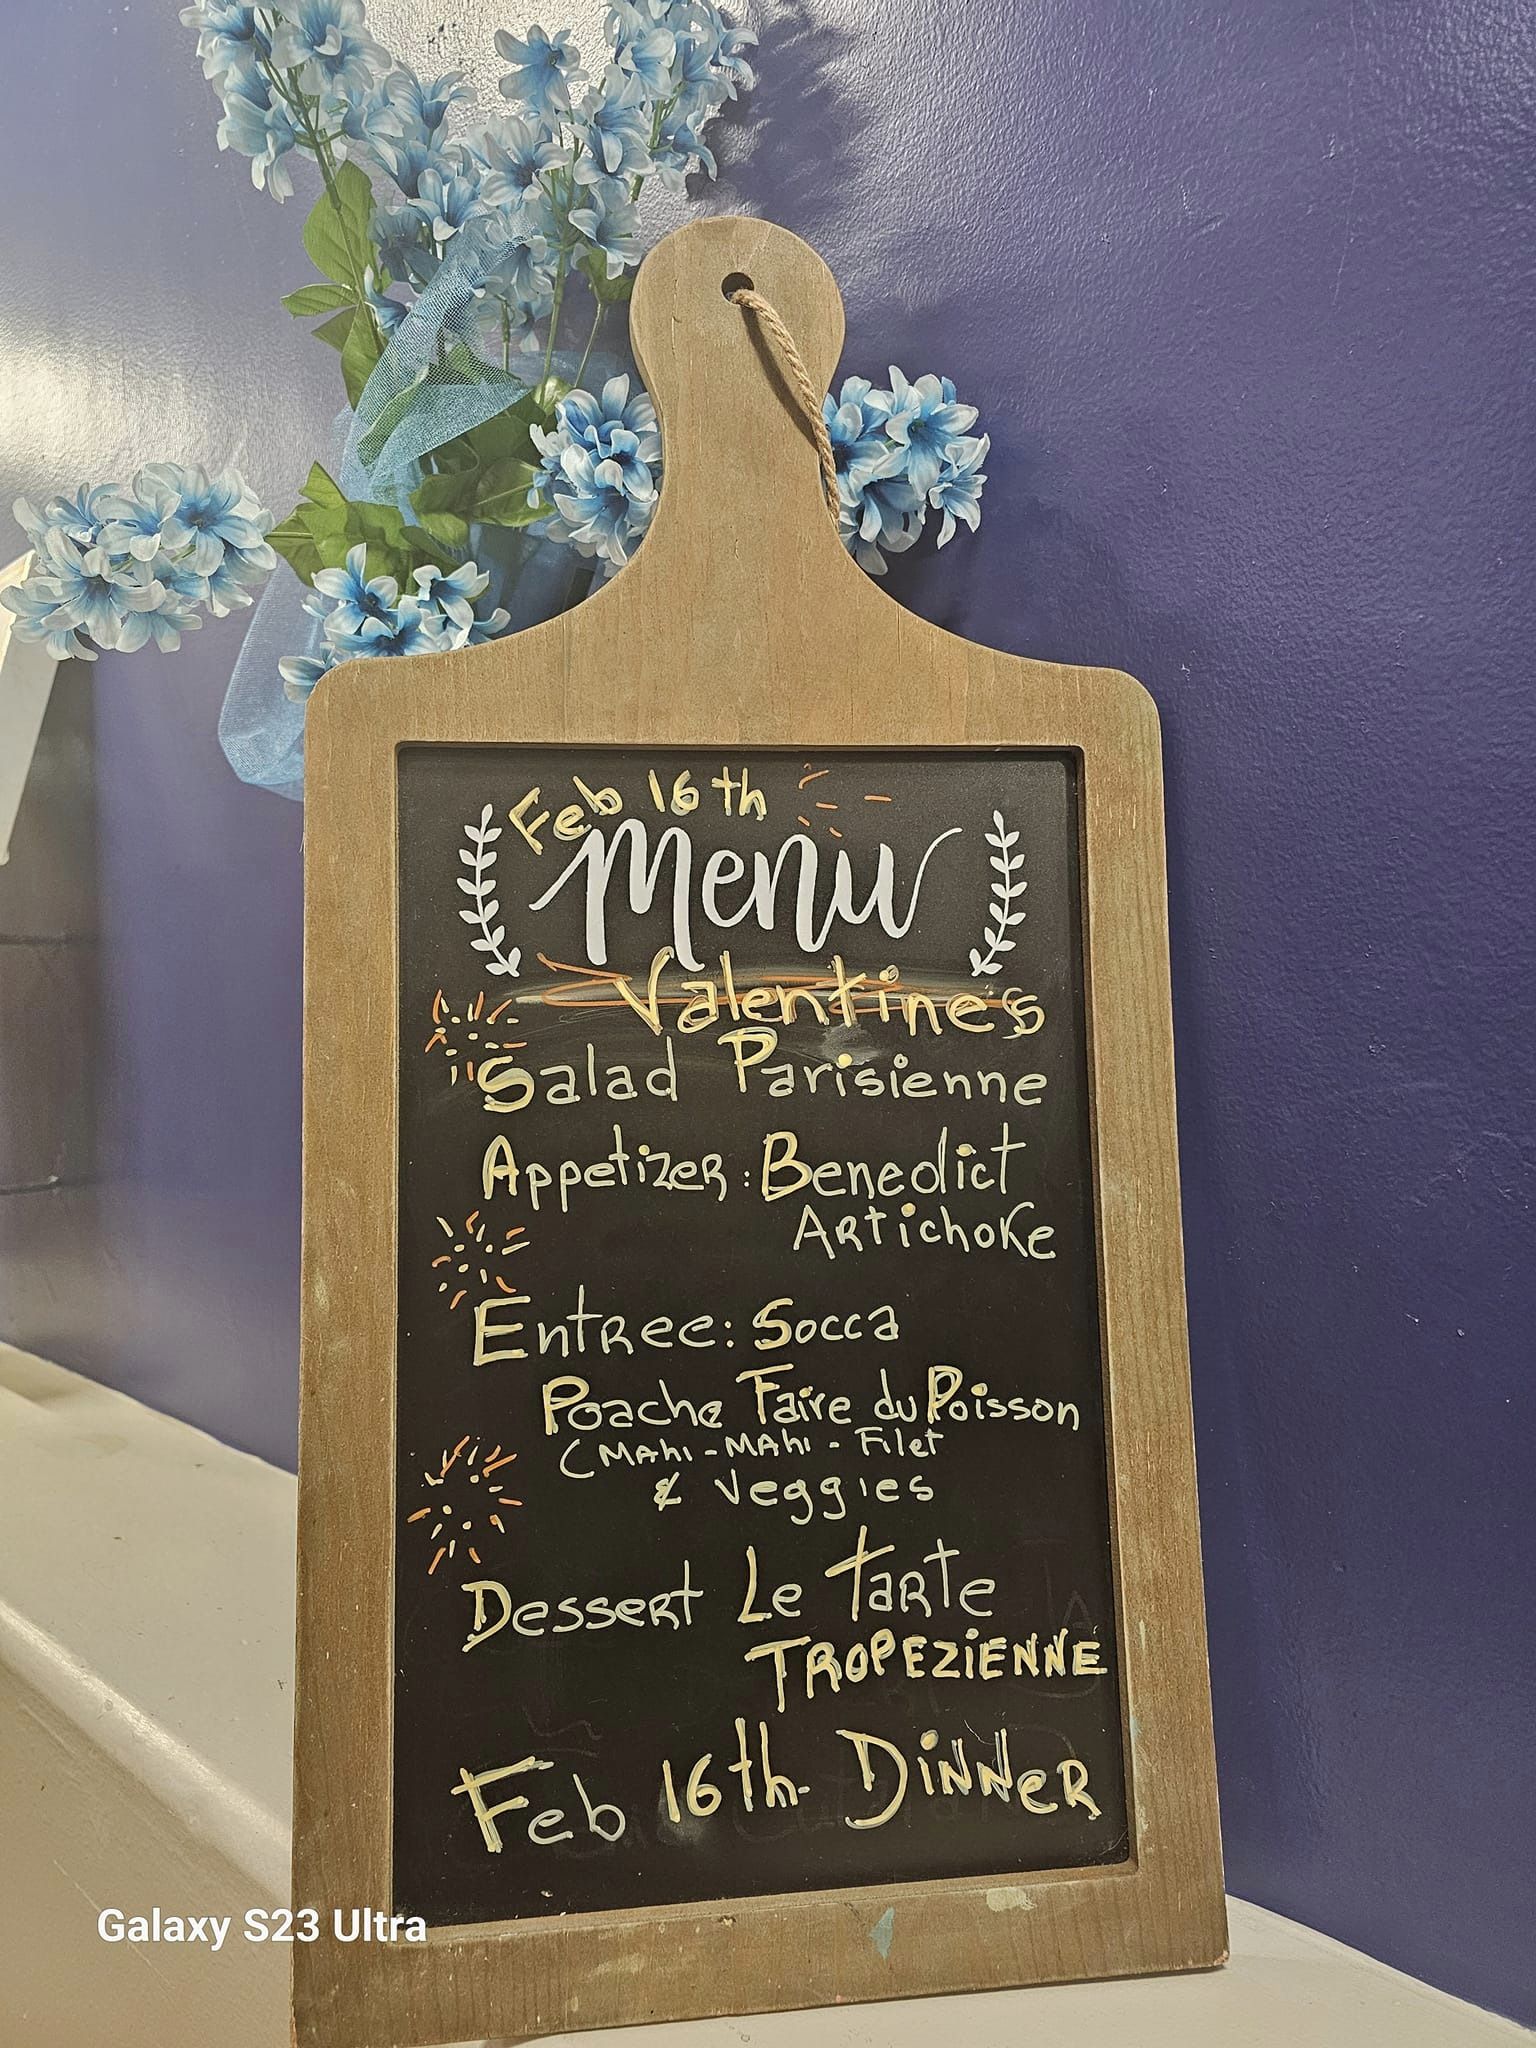 Feb 16th
Menu
Valentine's
Salad Parisienne
Appetizer: Benedict
Artichoke
Entree: Socca
Poache Faire du Poisson
(Mahi-Mahi-Filet
& Veggies
Dessert Le Tarte
TROPEZiENNE
Feb 16th Dinner
Galaxy S23 Ultra